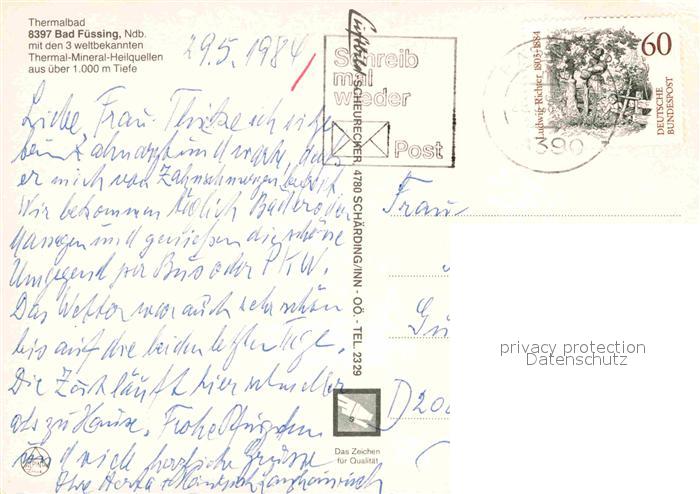 Thermalbad
8397 Bad Füssing, Ndb.
mit den 3 weltbekannten
Thermal-Mineral-Heilquellen
aus über 1.000 m Tiefe
29.5.1984
Liebe Frau Thitze ich sitze
beim Zahnarzt und warte, daß
er mich von Zahnschmerzen befreit
Wir bekommen täglich Bäder oder
Massagen und genießen die schöne
Umgegend per Bus oder PKW.
Das Wetter war auch sehr schön
bis auf die beiden letzten Tage.
Die Zeit läuft hier schneller
als zu Hause. Frohe Pfingsten
und viele herzliche Grüsse
Ihre Herta +
Luftbild SCHEURECKER, 4780 SCHÄRDING/INN - OÖ. - TEL. 23 29
Schreib
mal
wieder
Post
Ludwig Richter 1803-1884
60
DEUTSCHE
BUNDESPOST
8390
Frau
D 20
Das Zeichen
für Qualität
privacy protection
Datenschutz